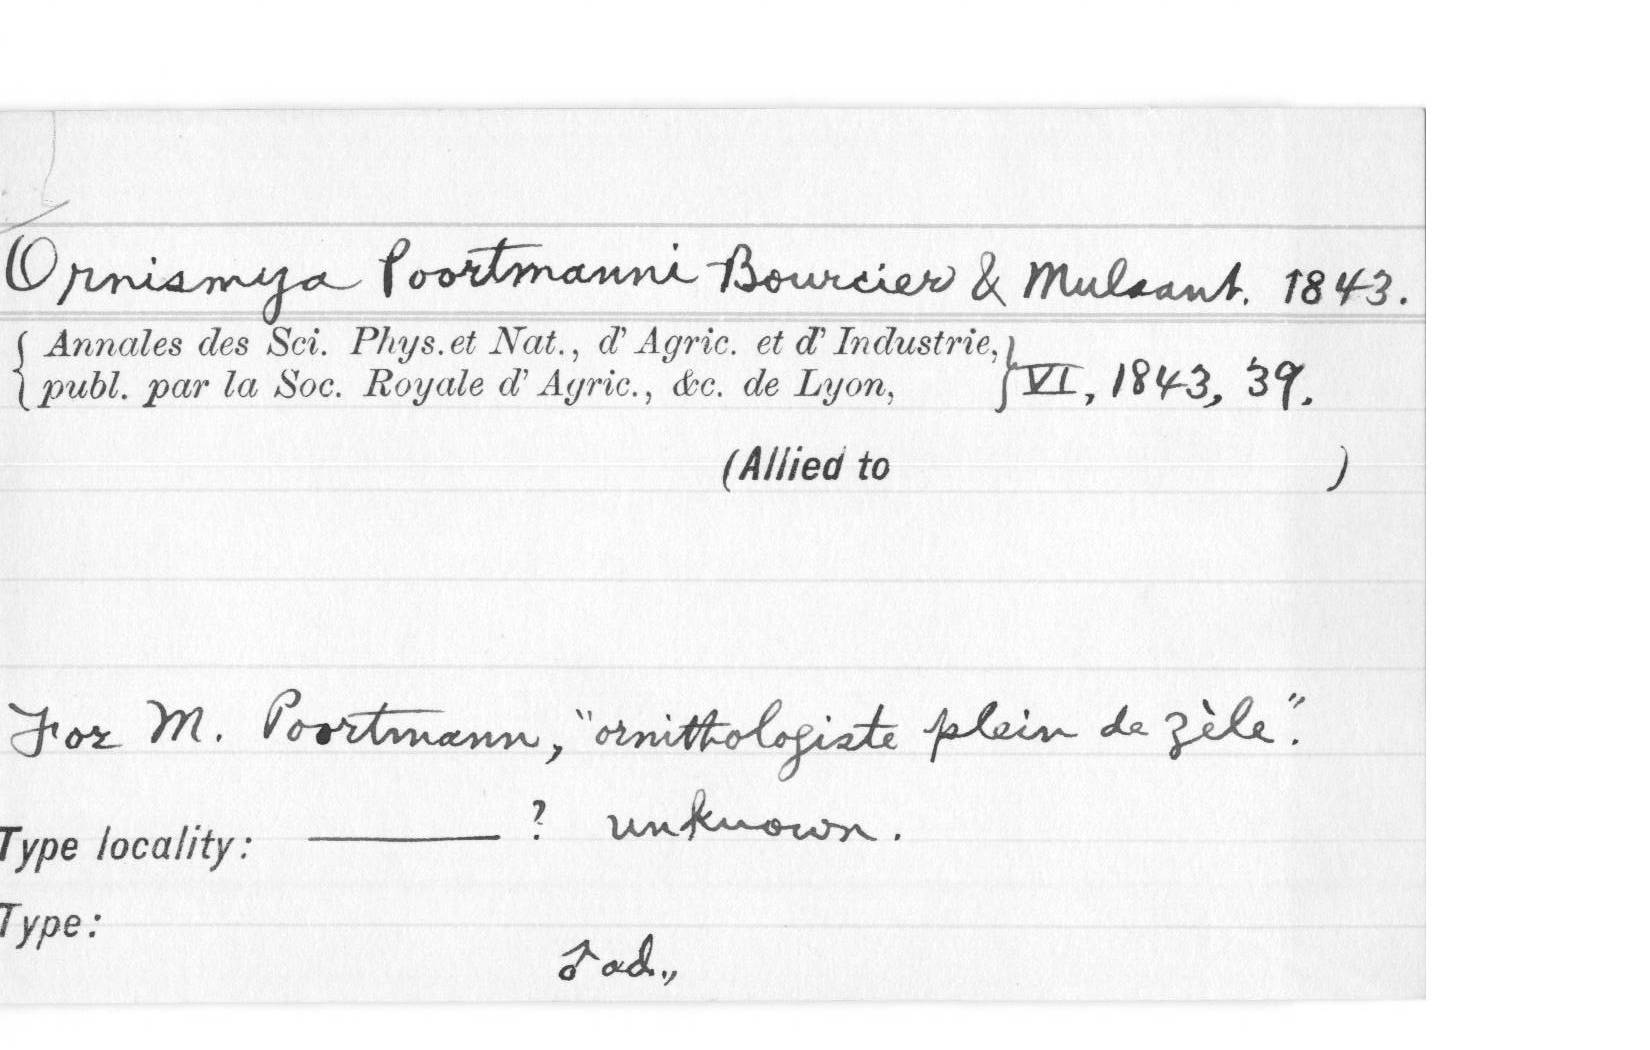 Ornismya Poortmanni Bourcier & Mulsant. 1843.
{ Annales des Sci. Phys. et Nat., d'Agric. et d'Industrie, }
{ publ. par la Soc. Royale d'Agric., &c. de Lyon, } VI, 1843, 39.
(Allied to )
For M. Poortmann, "ornithologiste plein de zèle".
Type locality: ——— ? unknown.
Type:
♂ ad.,